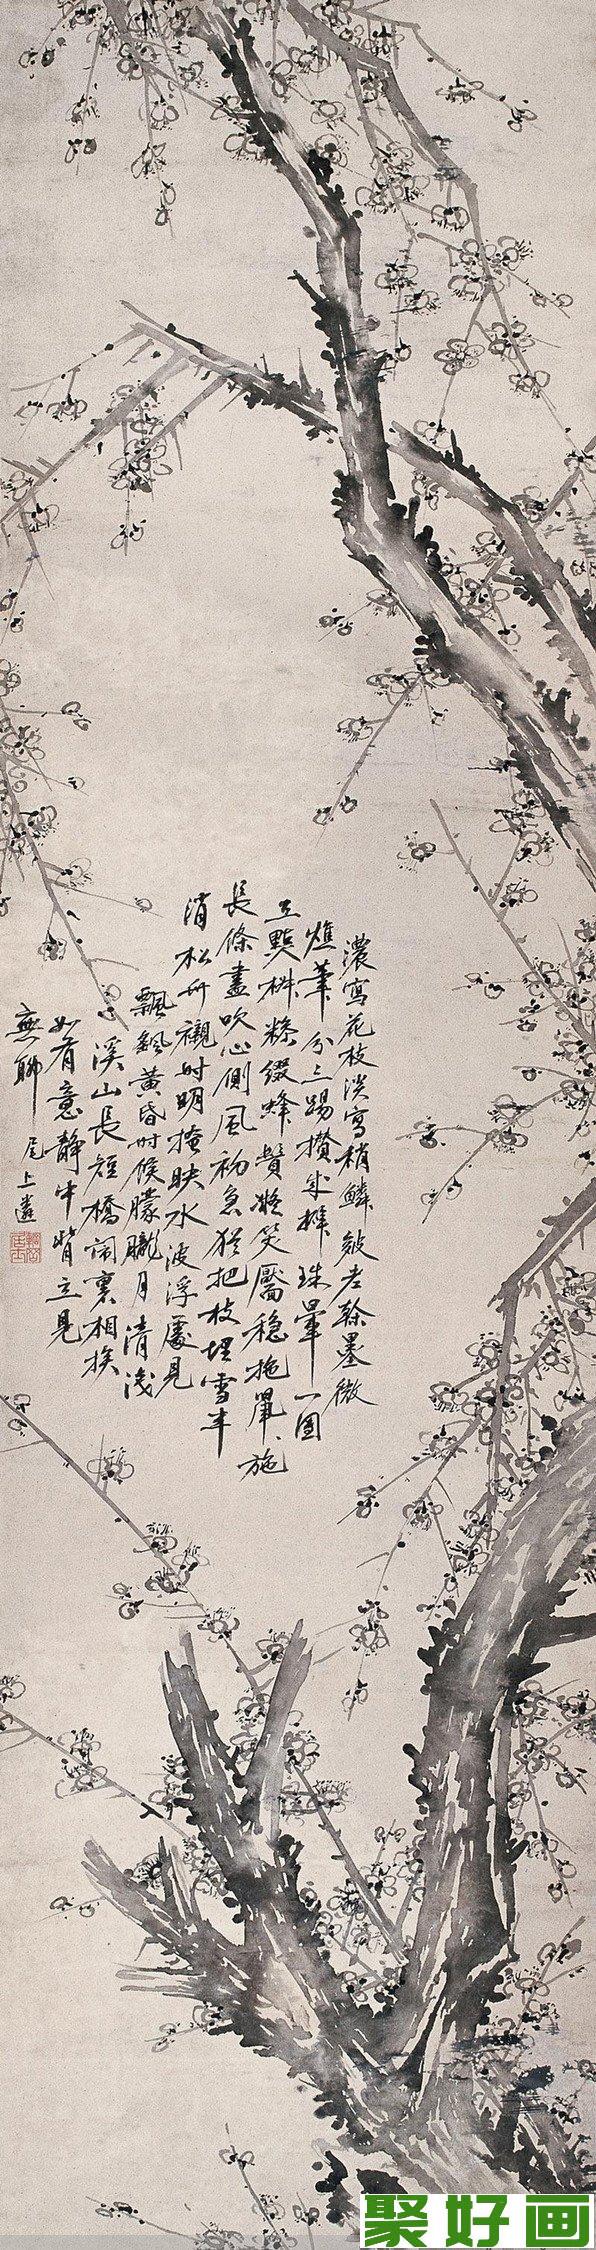 濃寫花枝淡寫梢鱗皴老幹墨微
燋筆分三踢攢成瓣珠暈一圓
工點椒糝綴蜂鬚凝笑靨穩拖鼠、施
長條盡吹心側風初急猶把枝埋雪半
消松竹襯时明掩映水波浮處見
飄颻黃昏时候朦朧月清淺
溪山長短橋鬧裏相挨
如有意靜中背立見
無聊 尾上遺
聚好画